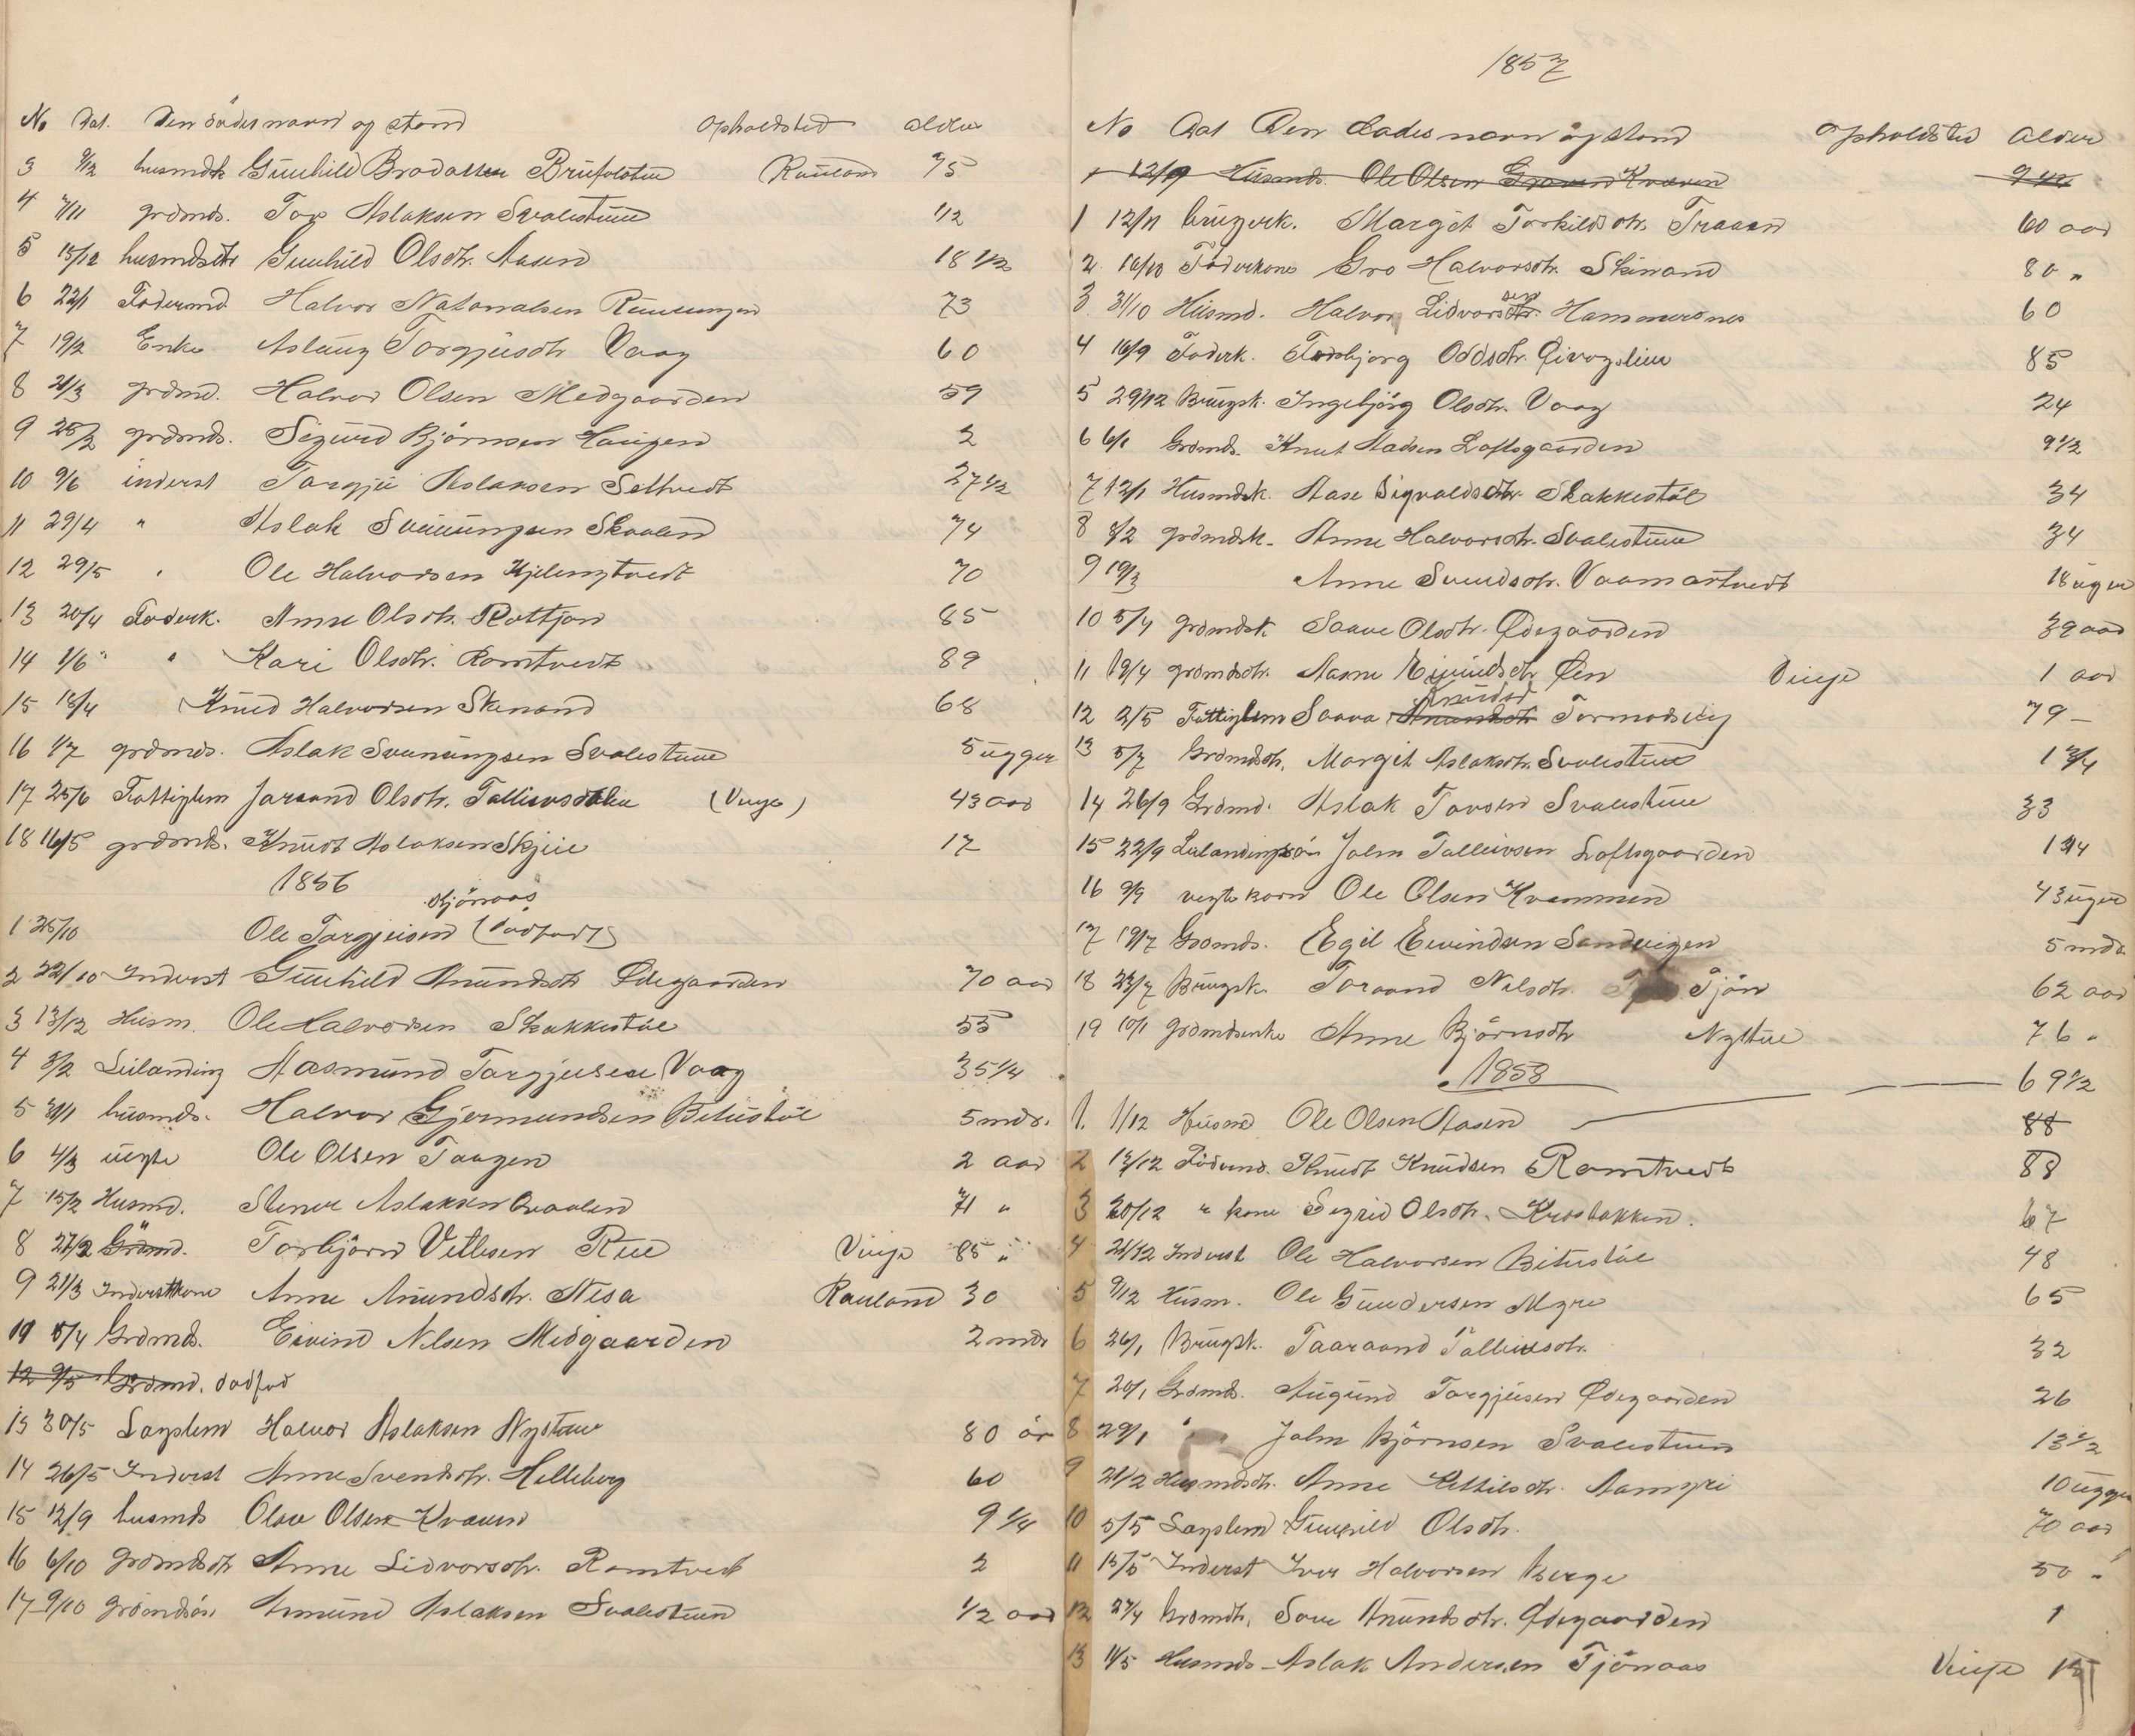 No Dat. Den dödes navn og stand opholdsted alder
3 9/12 husmdk Gunhild Brodalsen Brufolstue Rauland 75
4 7/11 grdmds. Tov Aslaksen Svalestuue 1/2
5 15/12 husmdsdtr Gunhild Olsdtr. Aasen 18 1/2
6 22/1 Födermd. Halvor Natanalsen 73
7 19/2 Enke Aslaug Torgjusdtr Vaag 60
8 21/3 grdmd. Halvor Olsen Medgaarden 59
9 25/2 grdmds. Sigurd Björnsen Haugen 2
10 9/6 inderst Torgju Aslaksen Seltvedt 27 1/2
11 29/4 " Aslak Svenungsen Skaalen 74
12 29/5 " Ole Halvorsen 70
13 20/4 Foderk. Anne Olsdtr. Rottjon 85
14 1/6 " Kari Olsdtr. Romtvedt 89
15 18/4 Knud Halvorsen Skinand 68
16 1/7 grdmds. Aslak Svenungsen Svalestuue 5 ugger
17 25/6 Fattiglem Jaraand Olsdtr. (Vinje) 43 aar
18 16/5 grdmds. Knudt Aslaksen Skjeie 17
1856
Kjönaas
1 25/10 Ole Torgjeisen (dödfödt)
2 22/10 Inderst Gunhild Anundsdtr Ödegaarden 70 aar
3 13/12 Husm. Ole Halvorsen Skakkestöle 55
4 3/2 Leilanding Aasmund Torgjusen Vaag 35 1/4
5 31/1 husmds. Halvor Gjermundsen Bitustöl 5 mdr.
6 4/3 uegte Ole Olsen Taagen 2 aar
7 15/2 Husmd. Stener Aslaksen 71 "
8 27/2 Grdmd. Torbjörn Vetlesen Rue Vinje 85 "
9 21/3 Inderstkone Anne Anundsdtr. Nesa Rauland 30
10 5/4 Grdmds. Eivind Nilsen Midgaarden 2 mdr
12 9/5 Grdmd. dödföd
13 30/5 Lægslem Halvor Aslaksen Nystaue 80 år
14 26/5 Inderst Anne Svendsdtr. Helleberg 60
15 12/9 husmds Olav Olsen Kvaven 9 1/4
16 6/10 Grdmdsdtr Anne Lidvorsdtr. Romtvedt 2
17 9/10 Grdmdsön Anund Aslaksen Svalestuun 1/2 aar
1857
No Dat Den dødes navn og stand opholdsted alder
1 12/9 Husmds. Ole Olsen Kvaven 9 1/2
1 12/11 brugerk. Margit Torkildsdtr. Traaen 60 aar
2 16/10 Föderkone Gro Halvorsdtr. Skinand 80 "
3 31/10 Husmd. Halvor Lidvorsdtr. sen Hammersnes 60
4 16/9 Foderk. Torbjorg Oddsdtr. 85
5 29/12 Brugsk. Ingebjörg Olsdtr. Vaag 24
6 6/1 Grdmds. Knut Aadsen Loftsgaarden 9 1/2
7 12/1 Husmdsk. Aase Sigvaldsdtr. Skakkestöl 34
8 8/2 grdmdsk. Anne Halvorsdtr. Svalestuue 34
9 19/3 Anne Svendsdtr. Vaamartveit 18 uger
10 5/4 grdmdsk Saave Olsdtr. Ødegaarden 39 aar
11 19/4 grdmdsdtr. Aasne Eivindsdtr Øen Vinje 1 aar
Knudsd
12 2/5 Fattiglem Saava Anundsdtr Tormodseig 79 –
13 5/7 Grdmdsdtr. Margit Aslaksdtr. Svalestuue 1 3/4
14 26/9 Grdmd. Aslak Tovsen Svalestuue 33
15 22/9 Leilandingsön Jalm Tallevsen Loftsgaarden 1 1/4
16 9/9 uegte barn Ole Olsen Kvammen 43 uger
17 19/7 Grdmds. Egil Eivindsen Sandvigen 5 mdr
18 23/7 Brugsk. Toraand Nilsdtr. Tjön 62 aar
19 10/1 Grdmdsenke Anne Björnsdtr Nystue 76 "
1858
69 1/2
1. 1/12 Husmd Ole Olsen Aasen 88
2 13/12 Födermd. Knudt Knudsen Romtvedt 88
3 20/12 " kone Sigrid Olsdtr. Krosbakken. 67
4 21/12 Inderst Ole Halvorsen Bitustöl 48
5 9/12 Husm. Ole Gundersen Myre 65
6 26/1 Brugsk. Taaraand Tallevsdtr. 32
7 20/1 Grdmds. Augund Torgjusen Ødegaarden 26
8 29/1 " Jalm Björnsen Svalestuen 13 1/2
9 21/2 Husmdsdtr. Anne Kittilsdtr. 10 ugger
10 5/5 Lægslem Gunhild Olsdtr. 70 aar
11 15/5 Inderst Iver Halvorsen Berge 50 "
12 27/4 Grdmdtr. Save Anundsdtr. Ødegaarden 1
13 11/5 Husmds Aslak Andersen Tjönaas Vinje